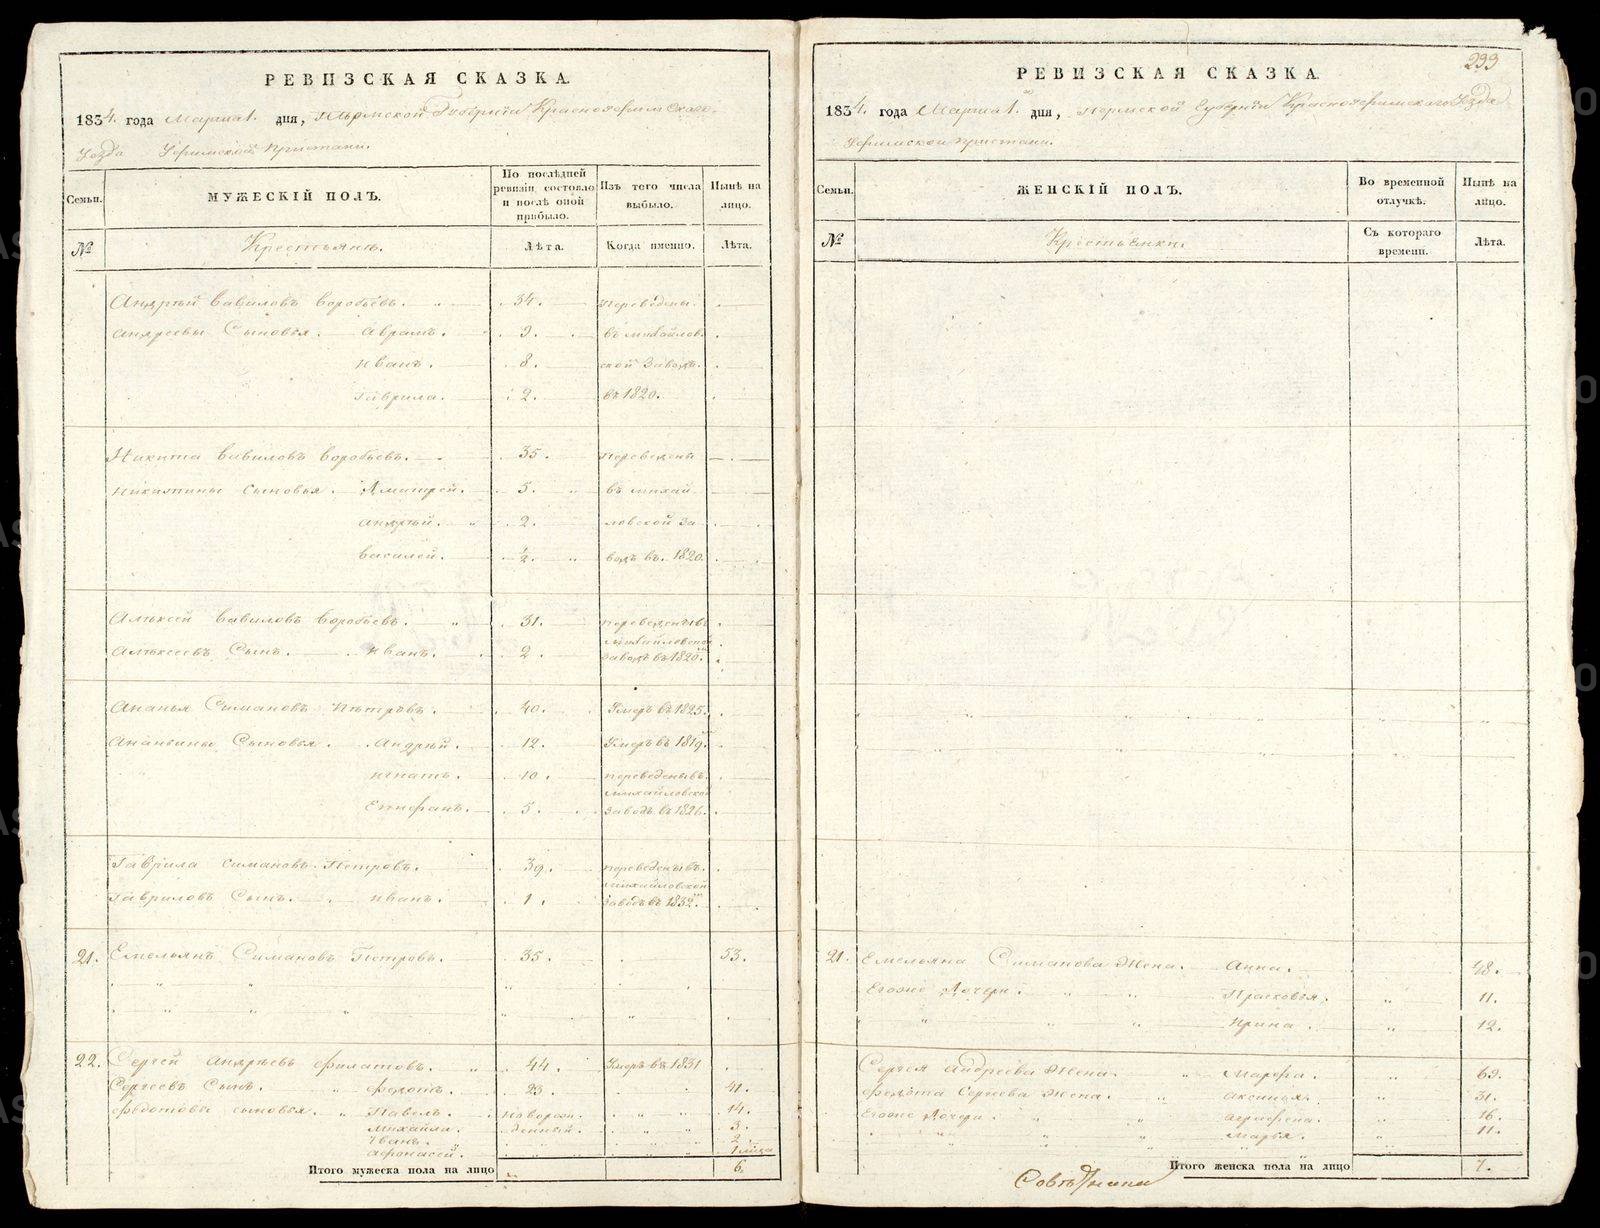 РЕВИЗСКАЯ СКАЗКА.
1834. года Марта 1. дня, Пермской Губерніи Красноуфимскаго
Уезда Уфимской Пристани.
Семьи.
МУЖЕСКІЙ ПОЛЪ.
По послѣдней ревизіи состояло и послѣ оной прибыло.
Изъ того числа выбыло.
Нынѣ на лицо.
№
Крестьянъ.
Лѣта.
Когда именно.
Лѣта.
Андрѣй Вавиловъ Воробьевъ. 34. Переведены
Андреевы Сыновья. Аврамъ. 9. въ михайлов
иванъ. 8. ской Заводъ.
Гаврила. 2. въ 1820.
Никита Вавиловъ Воробьевъ. 35. Переведены
Никитины Сыновья. Дмитрей. 5. въ михай
андрѣй. 2. ловской за
василей. ½ водъ въ. 1820.
Алѣксей Вавиловъ Воробьевъ. 31. переведенывъ
михайловской
Алѣксеевъ Сынъ. иванъ. 2. заводъ въ 1820.
Ананья Симановъ Пѣтровъ. 40. Умеръ въ 1825.
Ананьины Сыновья. Андрѣй. 12. Умеръ въ 1819.
игнатъ. 10. переведенывъ
михайловской
Епифанъ. 5. заводъ въ 1826.
Гаврила симановъ Петровъ. 39. переведенывъ
михайловской
Гавриловъ Сынъ. иванъ. 1. заводъ въ 1832.
21. Емельянъ Симановъ Петровъ. 35. 53.
22. Сергей андрѣевъ филатовъ. 44. Умеръ въ 1831
Сергеевъ Сынъ. федотъ. 23. 41.
федотовы сыновья. Павелъ. новорож 14.
михайла. денный. 3.
иванъ. 2.
афонасей. 1 лица
Итого мужеска пола на лицо 6.
299
РЕВИЗСКАЯ СКАЗКА.
1834. года Марта 1. дня, Пермской Губерніи Красноуфимскаго Уезда
Уфимской Пристани.
Семьи.
ЖЕНСКІЙ ПОЛЪ.
Во временной отлучкѣ.
Нынѣ на лицо.
№
Крестьянки.
Съ котораго времени.
Лѣта.
21. Емельяна Симанова Жена. Анна. 48.
Егоже Дочери. Прасковья. 11.
Ирина. 12.
Сергея Андреева Жена. Марфа. 69.
федота Сергева Жена. аксинья. 31.
Егоже Дочери. аграфена. 16.
марья. 11.
Итого женска пола на лицо 7.